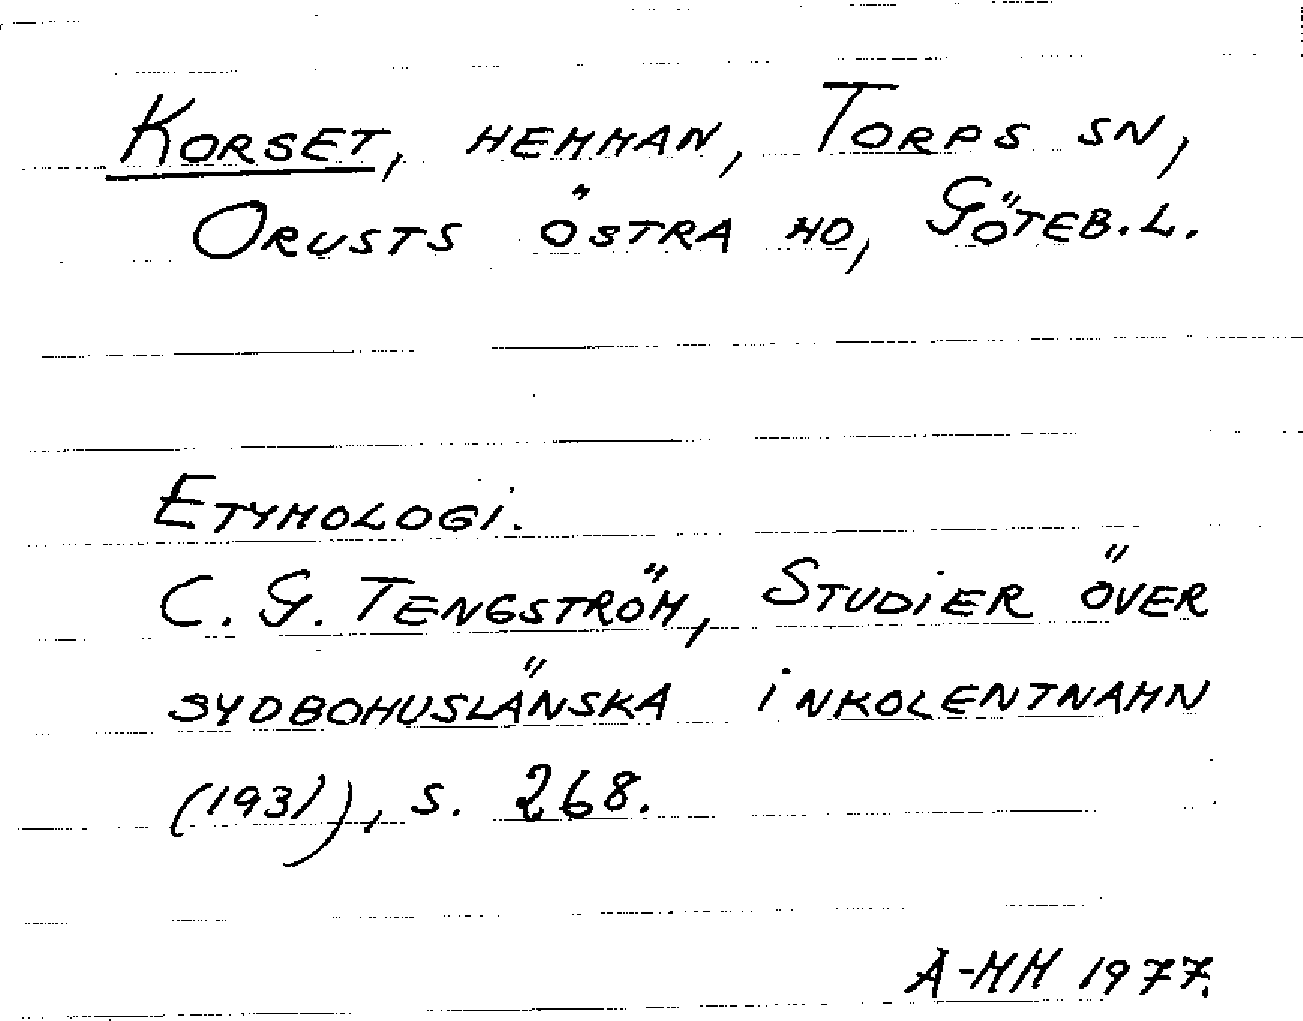 Korset, hemman, Torps sn,
Orusts östra hd, Göteb.l.
Etymologi.
C. G. Tengström, Studier över
sydbohuslänska inkolentnamn
(1931), s. 268.
A-MM 1977.